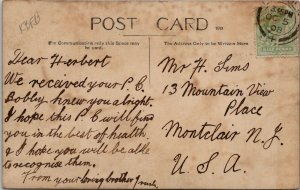 POST CARD
For Communication only this Space may be used.
The Address Only to be Written Here
Dear Herbert
We received your P.C.
Bobby knew you abright.
I hope this P.C will find
you in the best of health.
& I hope you will be able
to recognise them.
From your loving brother
Mr H. Sims
13 Mountain View
Place
Montclair N.J.
U.S.A.